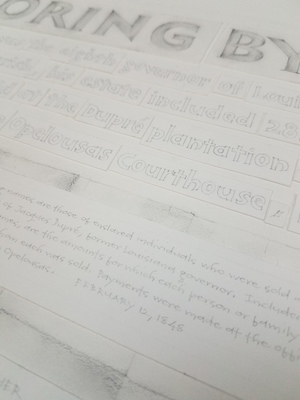 ORING BY
was the eighth governor of Loui
his estate included 28
the Dupré plantation
Opelousas Courthouse
names are those of enslaved individuals who were sold
of Jacques Dupré, former Louisiana governor. Include
are the amounts for which each person or family
each was sold. Payments were made at the off
Opelousas.
FEBRUARY 12, 1848